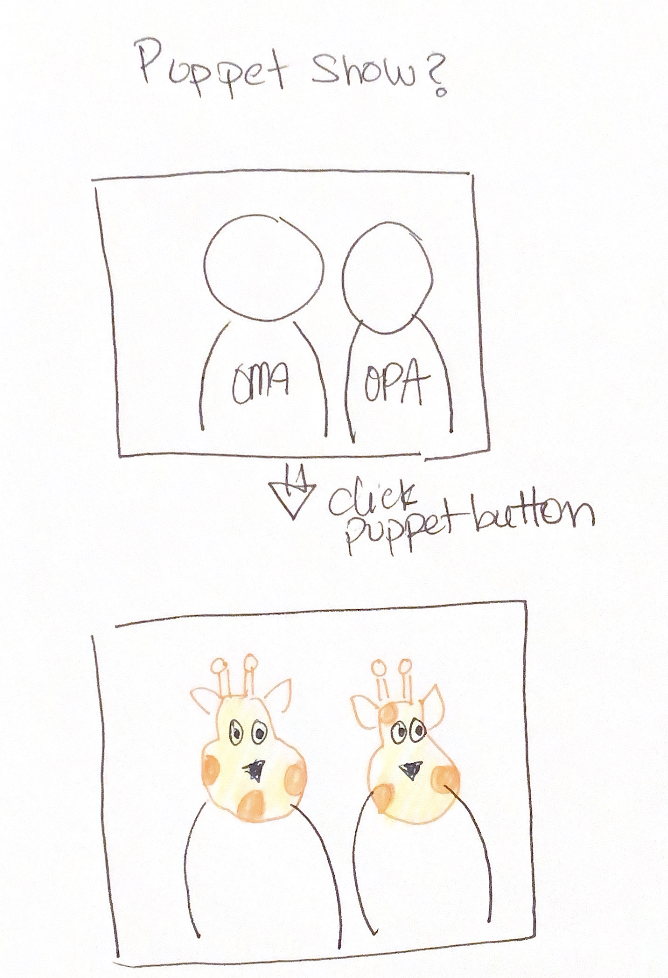 Puppet Show?
OMA
OPA
click
puppet-button